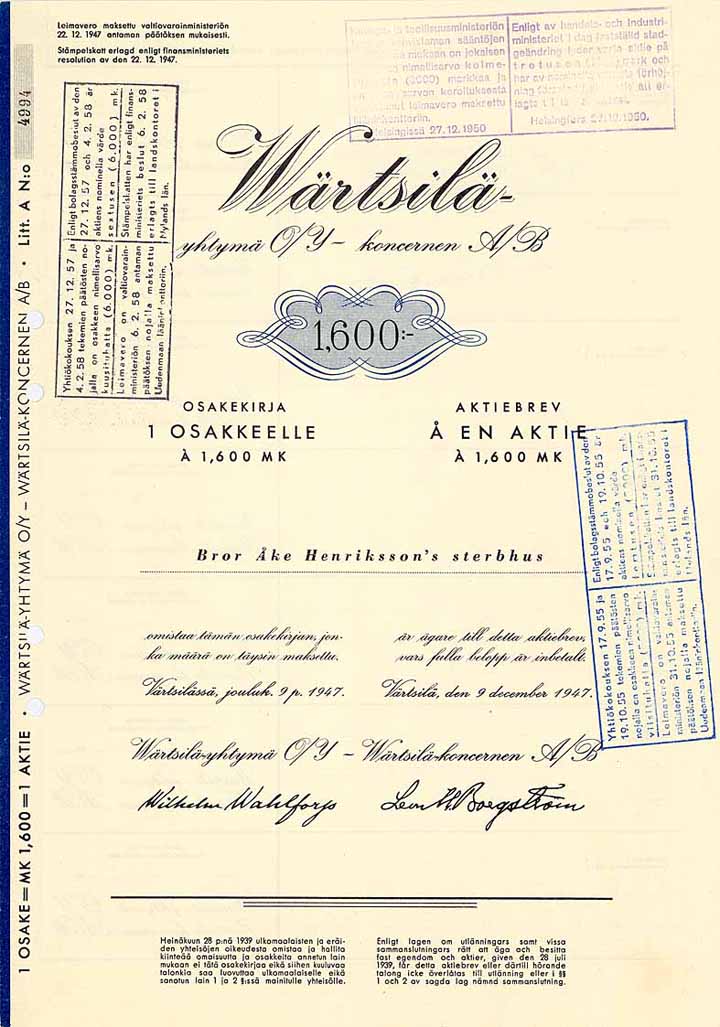 Leimavero maksettu valtiovarainministeriön
22. 12. 1947 antaman päätöksen mukaisesti.
Stämpelskatt erlagd enligt finansministeriets
resolution av den 22. 12. 1947.
Kauppa- ja teollisuusministeriön
sääntöjen
mukaan on jokaisen
nimellisarvo kolme-
(3000) markkaa ja
arvon korotuksesta
leimavero maksettu
Helsingissä 27.12.1950
Enligt av handels- och industri-
ministeriet i dag fastställd stad-
geändring lyder varje aktie på
tretusen mark och
har av
Helsingfors 27.12.1950.
Yhtiökokouksen 27. 12. 57 ja
4. 2. 58 tekemien päätösten no-
jalla on osakkeen nimellisarvo
kuusituhatta (6.000) mk.
Leimavero on valtiovarain-
ministeriön 6. 2. 58 antaman
päätöksen nojalla maksettu
Uudenmaan lääninkonttoriin.
Enligt bolagsstämmobeslut av den
27. 12. 57 och 4. 2. 58 är
aktiens nominella värde
sextusen (6.000) mk.
Stämpelskatten har enligt finans-
ministeriets beslut 6. 2. 58
erlagts till landskontoret i
Nylands län.
Wärtsilä-
yhtymä O/Y – koncernen A/B
1,600:-
OSAKEKIRJA
1 OSAKKEELLE
À 1,600 MK
AKTIEBREV
Å EN AKTIE
À 1,600 MK
Bror Åke Henriksson's sterbhus
omistaa tämän osakekirjan, jon-
ka määrä on täysin maksettu.
Wärtsilässä, jouluk. 9 p. 1947.
är ägare till detta aktiebrev,
vars fulla belopp är inbetalt.
Wärtsilä, den 9 december 1947.
Wärtsilä-yhtymä O/Y – Wärtsilä-koncernen A/B
Wilhelm Wahlforss
Yhtiökokouksen 17. 9. 55 ja
19. 10. 55 tekemien päätösten
nojalla on osakkeen nimellisarvo
viisituhatta mk.
Leimavero on valtiovarain-
ministeriön 31. 10. 55 antaman
päätöksen nojalla maksettu
Uudenmaan lääninkonttoriin.
Enligt bolagsstämmobeslut av den
17. 9. 55 och 19. 10. 55 är
aktiens nominella värde
femtusen mk.
erlagts till landskontoret i
Nylands län.
Heinäkuun 28 p:nä 1939 ulkomaalaisten ja eräi-
den yhteisöjen oikeudesta omistaa ja hallita
kiinteää omaisuutta ja osakkeita annetun lain
mukaan ei tätä osakekirjaa eikä siihen kuuluvaa
talonkia saa luovuttaa ulkomaalaiselle eikä
sanotun lain 1 ja 2 §:ssä mainitulle yhteisölle.
Enligt lagen om utlänningars samt vissa
sammanslutningars rätt att äga och besitta
fast egendom och aktier, given den 28 juli
1939, får detta aktiebrev eller därtill hörande
talong icke överlåtas till utlänning eller i §§
1 och 2 av sagda lag nämnd sammanslutning.
1 OSAKE = MK 1,600 = 1 AKTIE • WÄRTSILÄ-YHTYMÄ O/Y – WÄRTSILÄ-KONCERNEN A/B • Litt. A N:o 4994